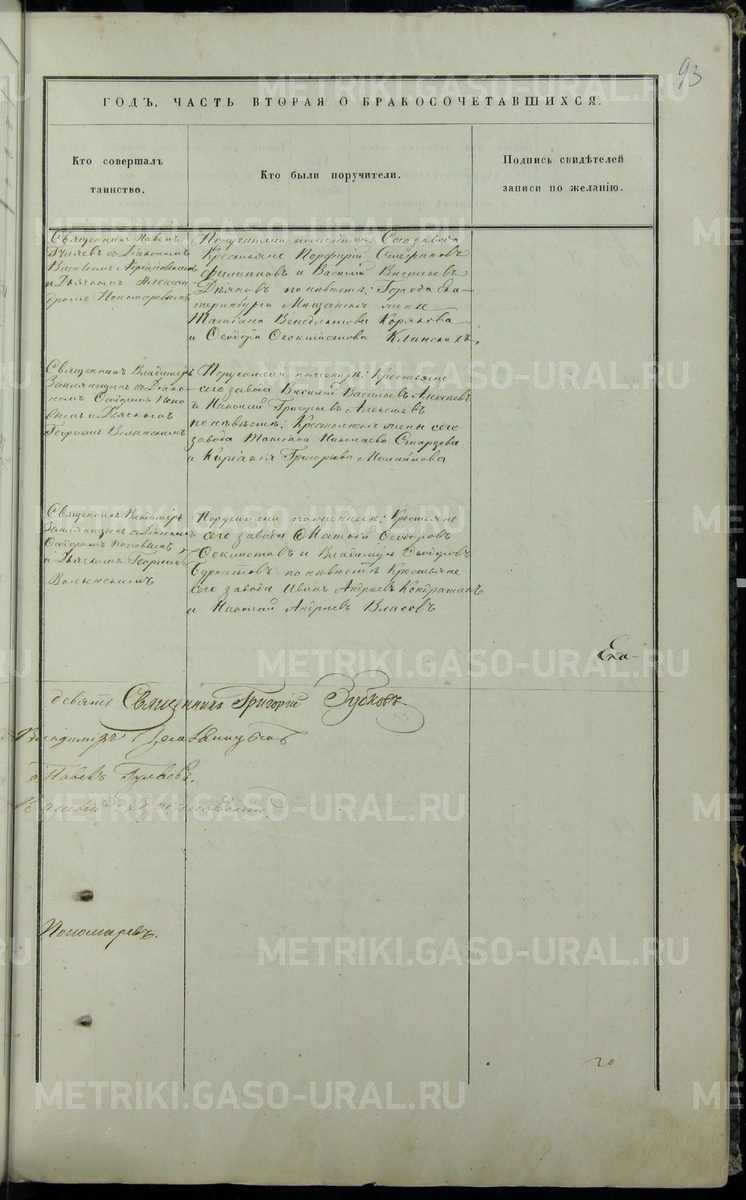 93
ГОДЪ, ЧАСТЬ ВТОРАЯ О БРАКОСОЧЕТАВШИХСЯ.
Кто совершалъ
таинство.
Кто были поручители.
Подпись свидѣтелей
записи по желанію.
Священникъ Павелъ
Гуляевъ съ Діакономъ
Василіемъ
и Дьячкомъ Алексан
дромъ Пономаревымъ
Поручители по женихѣ: Сего завода
Крестьяне Порфирій Стефановъ
Филипповъ и Василій Васильевъ
по невѣстѣ: Города Ека
теринбурга Мѣщанскія жены
Татьяна Венедиктова Корякова
и Ѳеодора Ѳеоктистова
Священникъ Владиміръ
Земляницынъ съ Діако
номъ Ѳеодоромъ Попо
вымъ и Дьячкомъ
Георгіемъ Волынскимъ
Поручители по женихѣ: Крестьяне
сего завода Василій Васильевъ Алексѣевъ
и Николай Григорьевъ Алексѣевъ
по невѣстѣ: Крестьянскія жены сего
завода Татьяна Николаева Старцева
и Григорьева Михайлова
Священникъ Владиміръ
Земляницынъ съ Діакономъ
Ѳеодоромъ Поповымъ
и Дьячкомъ Георгіемъ
Волынскимъ
Поручители по женихѣ: Крестьяне
сего завода Матвей Ѳеодоровъ
Ѳеоктистовъ и Владиміръ Ѳеодоровъ
по невѣстѣ Крестьяне
сего завода Иванъ Андреевъ Кондрашинъ
и Николай Андреевъ Власовъ
Ека-
девять Священникъ Григорій
Владиміръ Земляницынъ
Павелъ Гуляевъ.
Пономаревъ.
METRIKI.GASO-URAL.RU